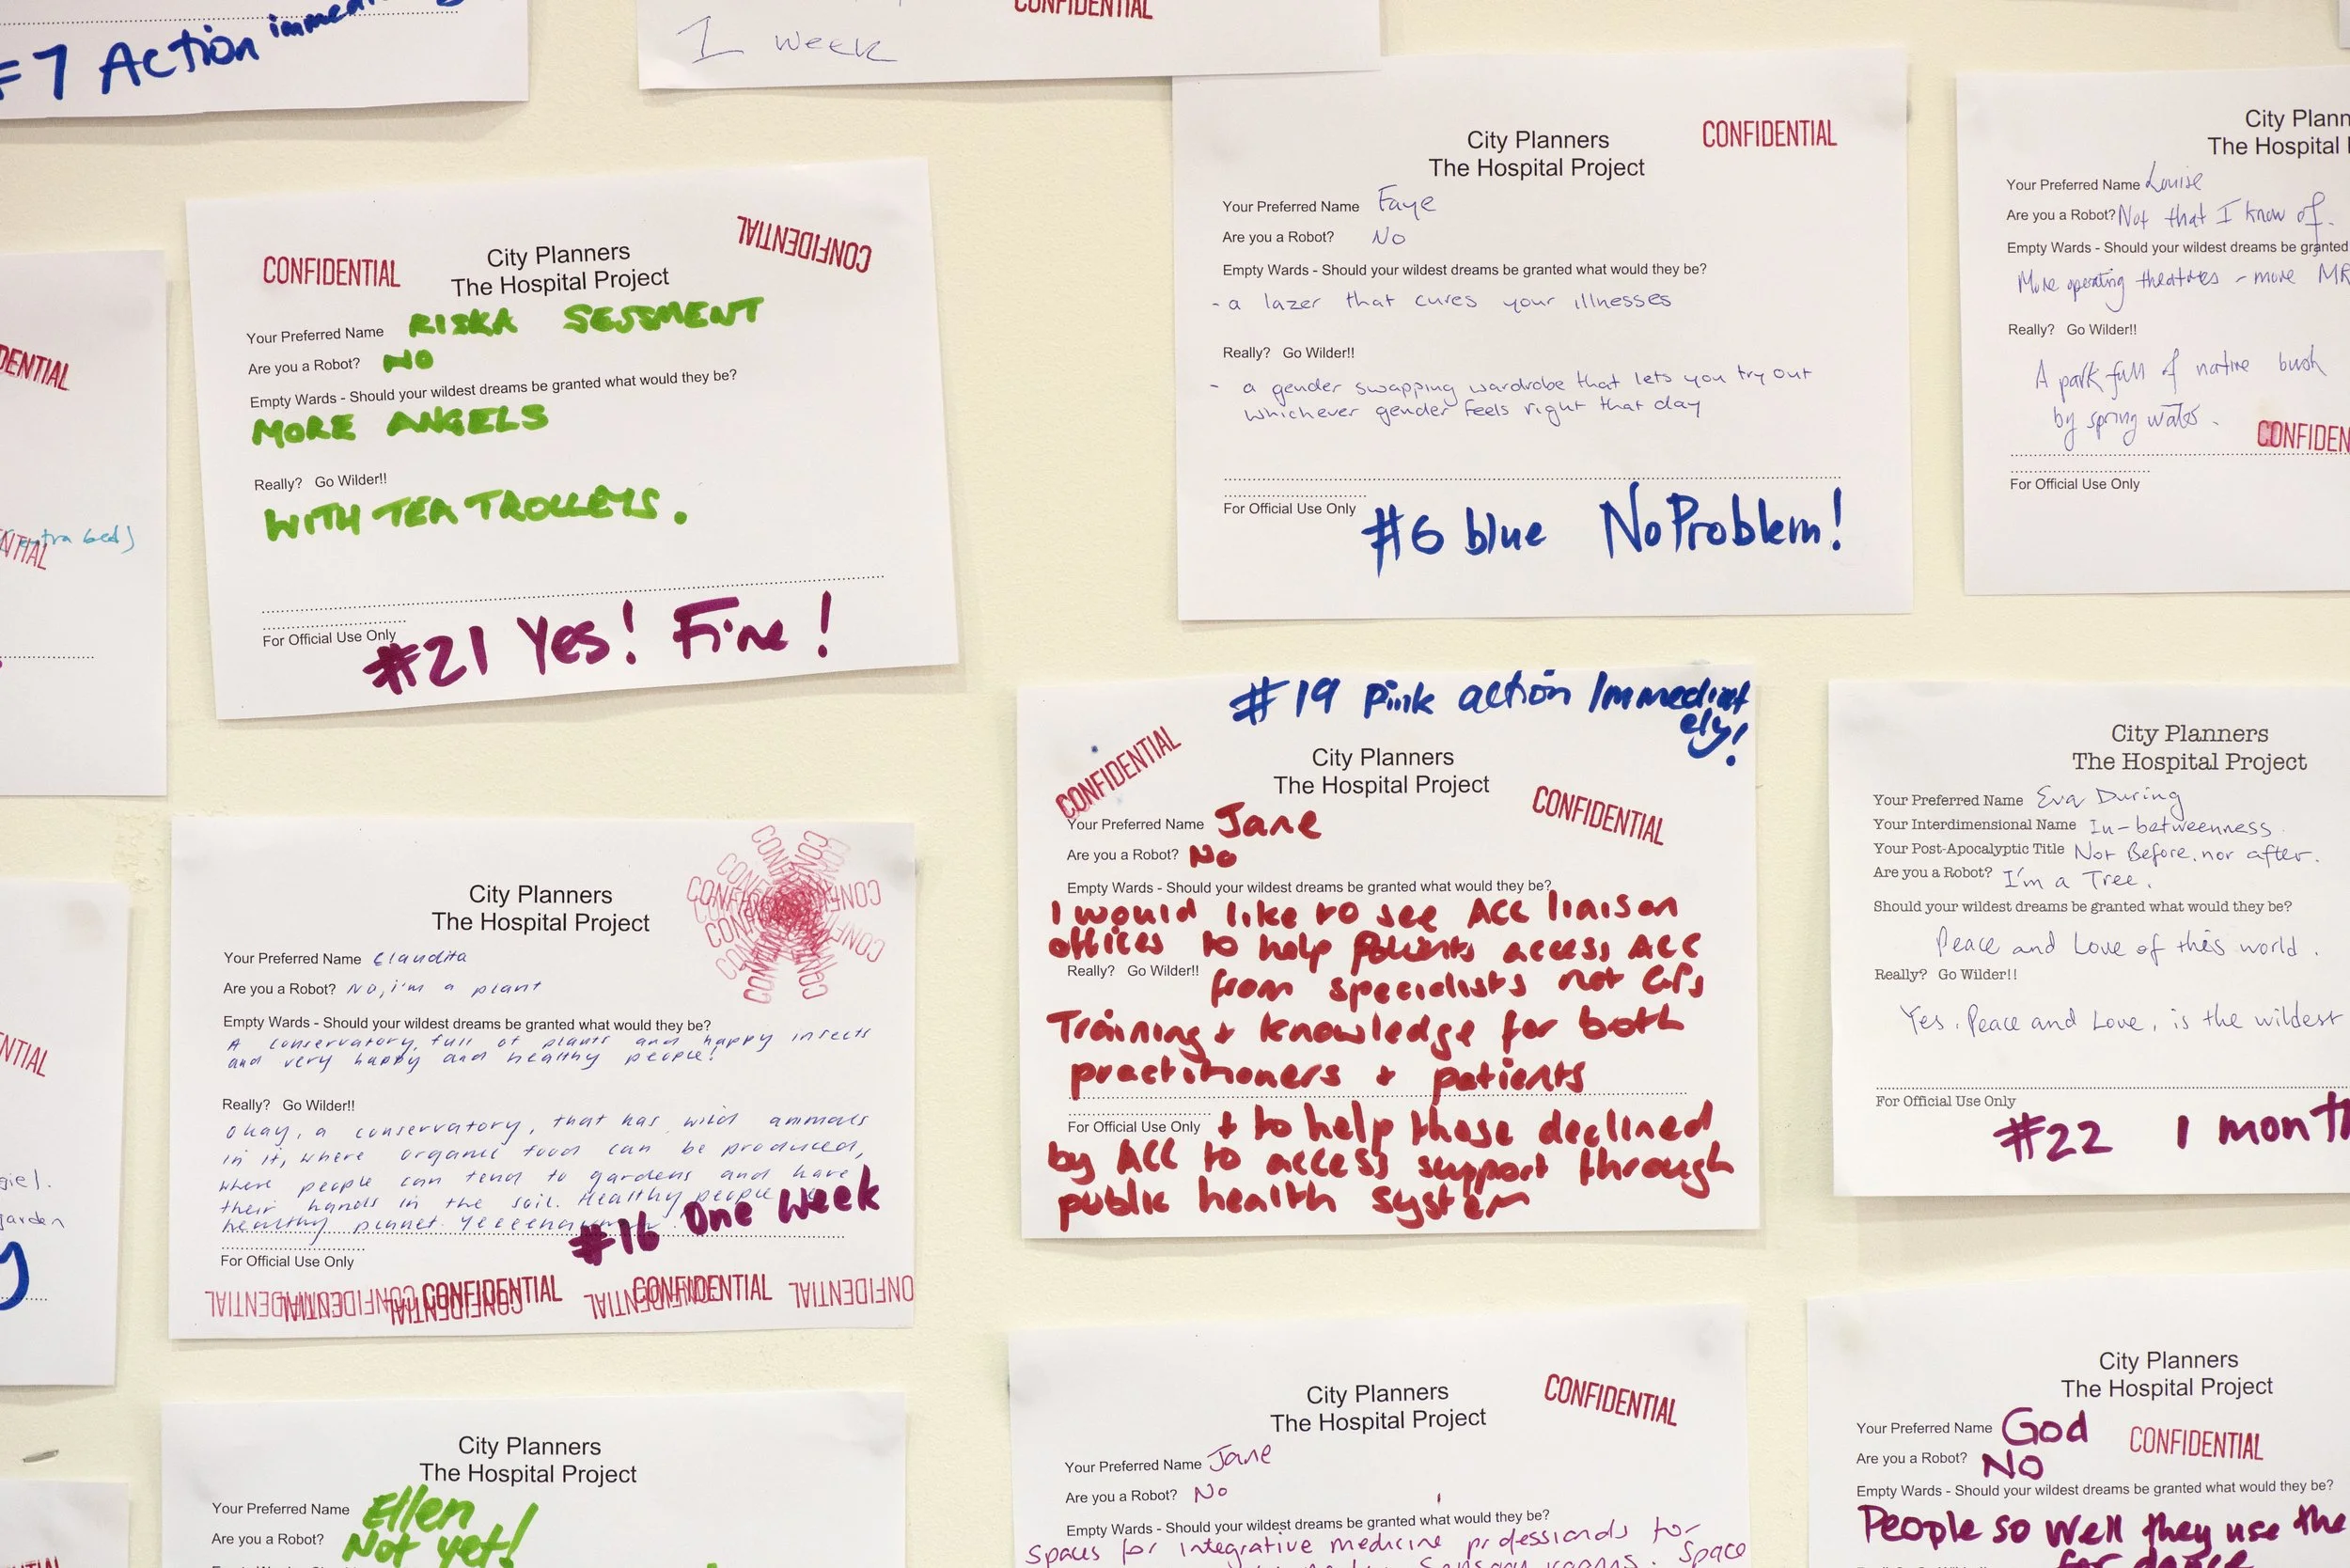 #7 Action immed
CONFIDENTIAL
1 week
CONFIDENTIAL
CONFIDENTIAL
City Planners
The Hospital Project
Your Preferred Name RISKA SESSMENT
Are you a Robot? NO
Empty Wards - Should your wildest dreams be granted what would they be?
MORE ANGELS
Really? Go Wilder!!
WITH TEA TROLLEYS.
For Official Use Only
#21 Yes! Fine!
City Planners
The Hospital Project
CONFIDENTIAL
Your Preferred Name Faye
Are you a Robot? No
Empty Wards - Should your wildest dreams be granted what would they be?
- a lazer that cures your illnesses
Really? Go Wilder!!
- a gender swapping wardrobe that lets you try out
whichever gender feels right that day
For Official Use Only
#6 blue No Problem!
City Plann
The Hospital
Your Preferred Name Louise
Are you a Robot? Not that I know of.
Empty Wards - Should your wildest dreams be granted
More operating theatres - more MR
Really? Go Wilder!!
A park full of native bush
by spring water.
CONFIDEN
For Official Use Only
DENTIAL
extra bed)
NTIAL
#19 Pink action Immediat
ely!
CONFIDENTIAL
City Planners
The Hospital Project
CONFIDENTIAL
Your Preferred Name Jane
Are you a Robot? No
Empty Wards - Should your wildest dreams be granted what would they be?
I would like to see ACC liaison
offices to help patients access ACC
Really? Go Wilder!!
from specialists not GPs
Training + knowledge for both
practitioners + patients
For Official Use Only
+ to help those declined
by ACC to access support through
public health system
City Planners
The Hospital Project
Your Preferred Name Eva During
Your Interdimensional Name In-betweenness
Your Post-Apocalyptic Title Not Before, nor after.
Are you a Robot? I'm a Tree.
Should your wildest dreams be granted what would they be?
Peace and Love of this world.
Really? Go Wilder!!
Yes. Peace and Love, is the wildest
For Official Use Only
#22 1 mont
City Planners
The Hospital Project
Your Preferred Name Claudita
Are you a Robot? No, i'm a plant
Empty Wards - Should your wildest dreams be granted what would they be?
A conservatory, full of plants and happy insects
and very happy and healthy people!
Really? Go Wilder!!
Okay, a conservatory, that has wild animals
in it, where organic food can be produced,
where people can tend to gardens and have
their hands in the soil. Healthy people
healthy planet.
#16 One Week
For Official Use Only
CONFIDENTIAL CONFIDENTIAL CONFIDENTIAL CONFIDENTIAL
NTIAL
garden
City Planners
The Hospital Project
Your Preferred Name Ellen
Are you a Robot? Not yet!
City Planners
The Hospital Project
CONFIDENTIAL
Your Preferred Name Jane
Are you a Robot? No
Empty Wards - Should your wildest dreams be granted what would they be?
Spaces for integrative medicine professionals for
Space
City Planners
The Hospital Project
Your Preferred Name God
CONFIDENTIAL
Are you a Robot? No
Empty Wards - Should your wildest dreams be granted what would they be?
People so well they use the
for dance